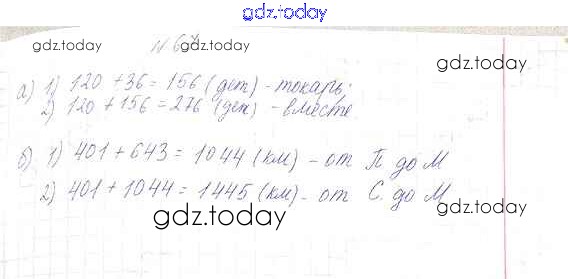 gdz.today
gdz.today
gdz.today
а) 1) 120 + 36 = 156 (дет) - токарь.
2) 120 + 156 = 276 (дет) - вместе.
б) 1) 401 + 643 = 1044 (км) - от П. до М
2) 401 + 1044 = 1445 (км) - от С. до М
gdz.today
gdz.today